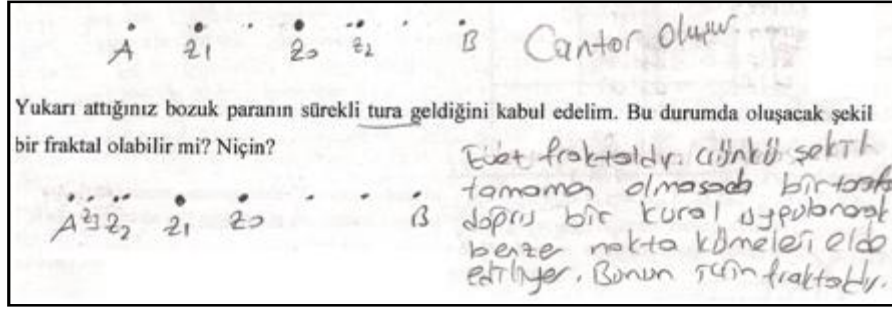 Cantor oluşur.
A z1 z0 z2 B
Yukarı attığınız bozuk paranın sürekli tura geldiğini kabul edelim. Bu durumda oluşacak şekil
bir fraktal olabilir mi? Niçin?
Evet fraktaldır. Çünkü şekil
tamamen olmasada bir
doğru bir kural uygulanarak
benzer nokta kümeleri elde
ediliyor. Bunun için fraktaldır.
A z3 z2 z1 z0 B